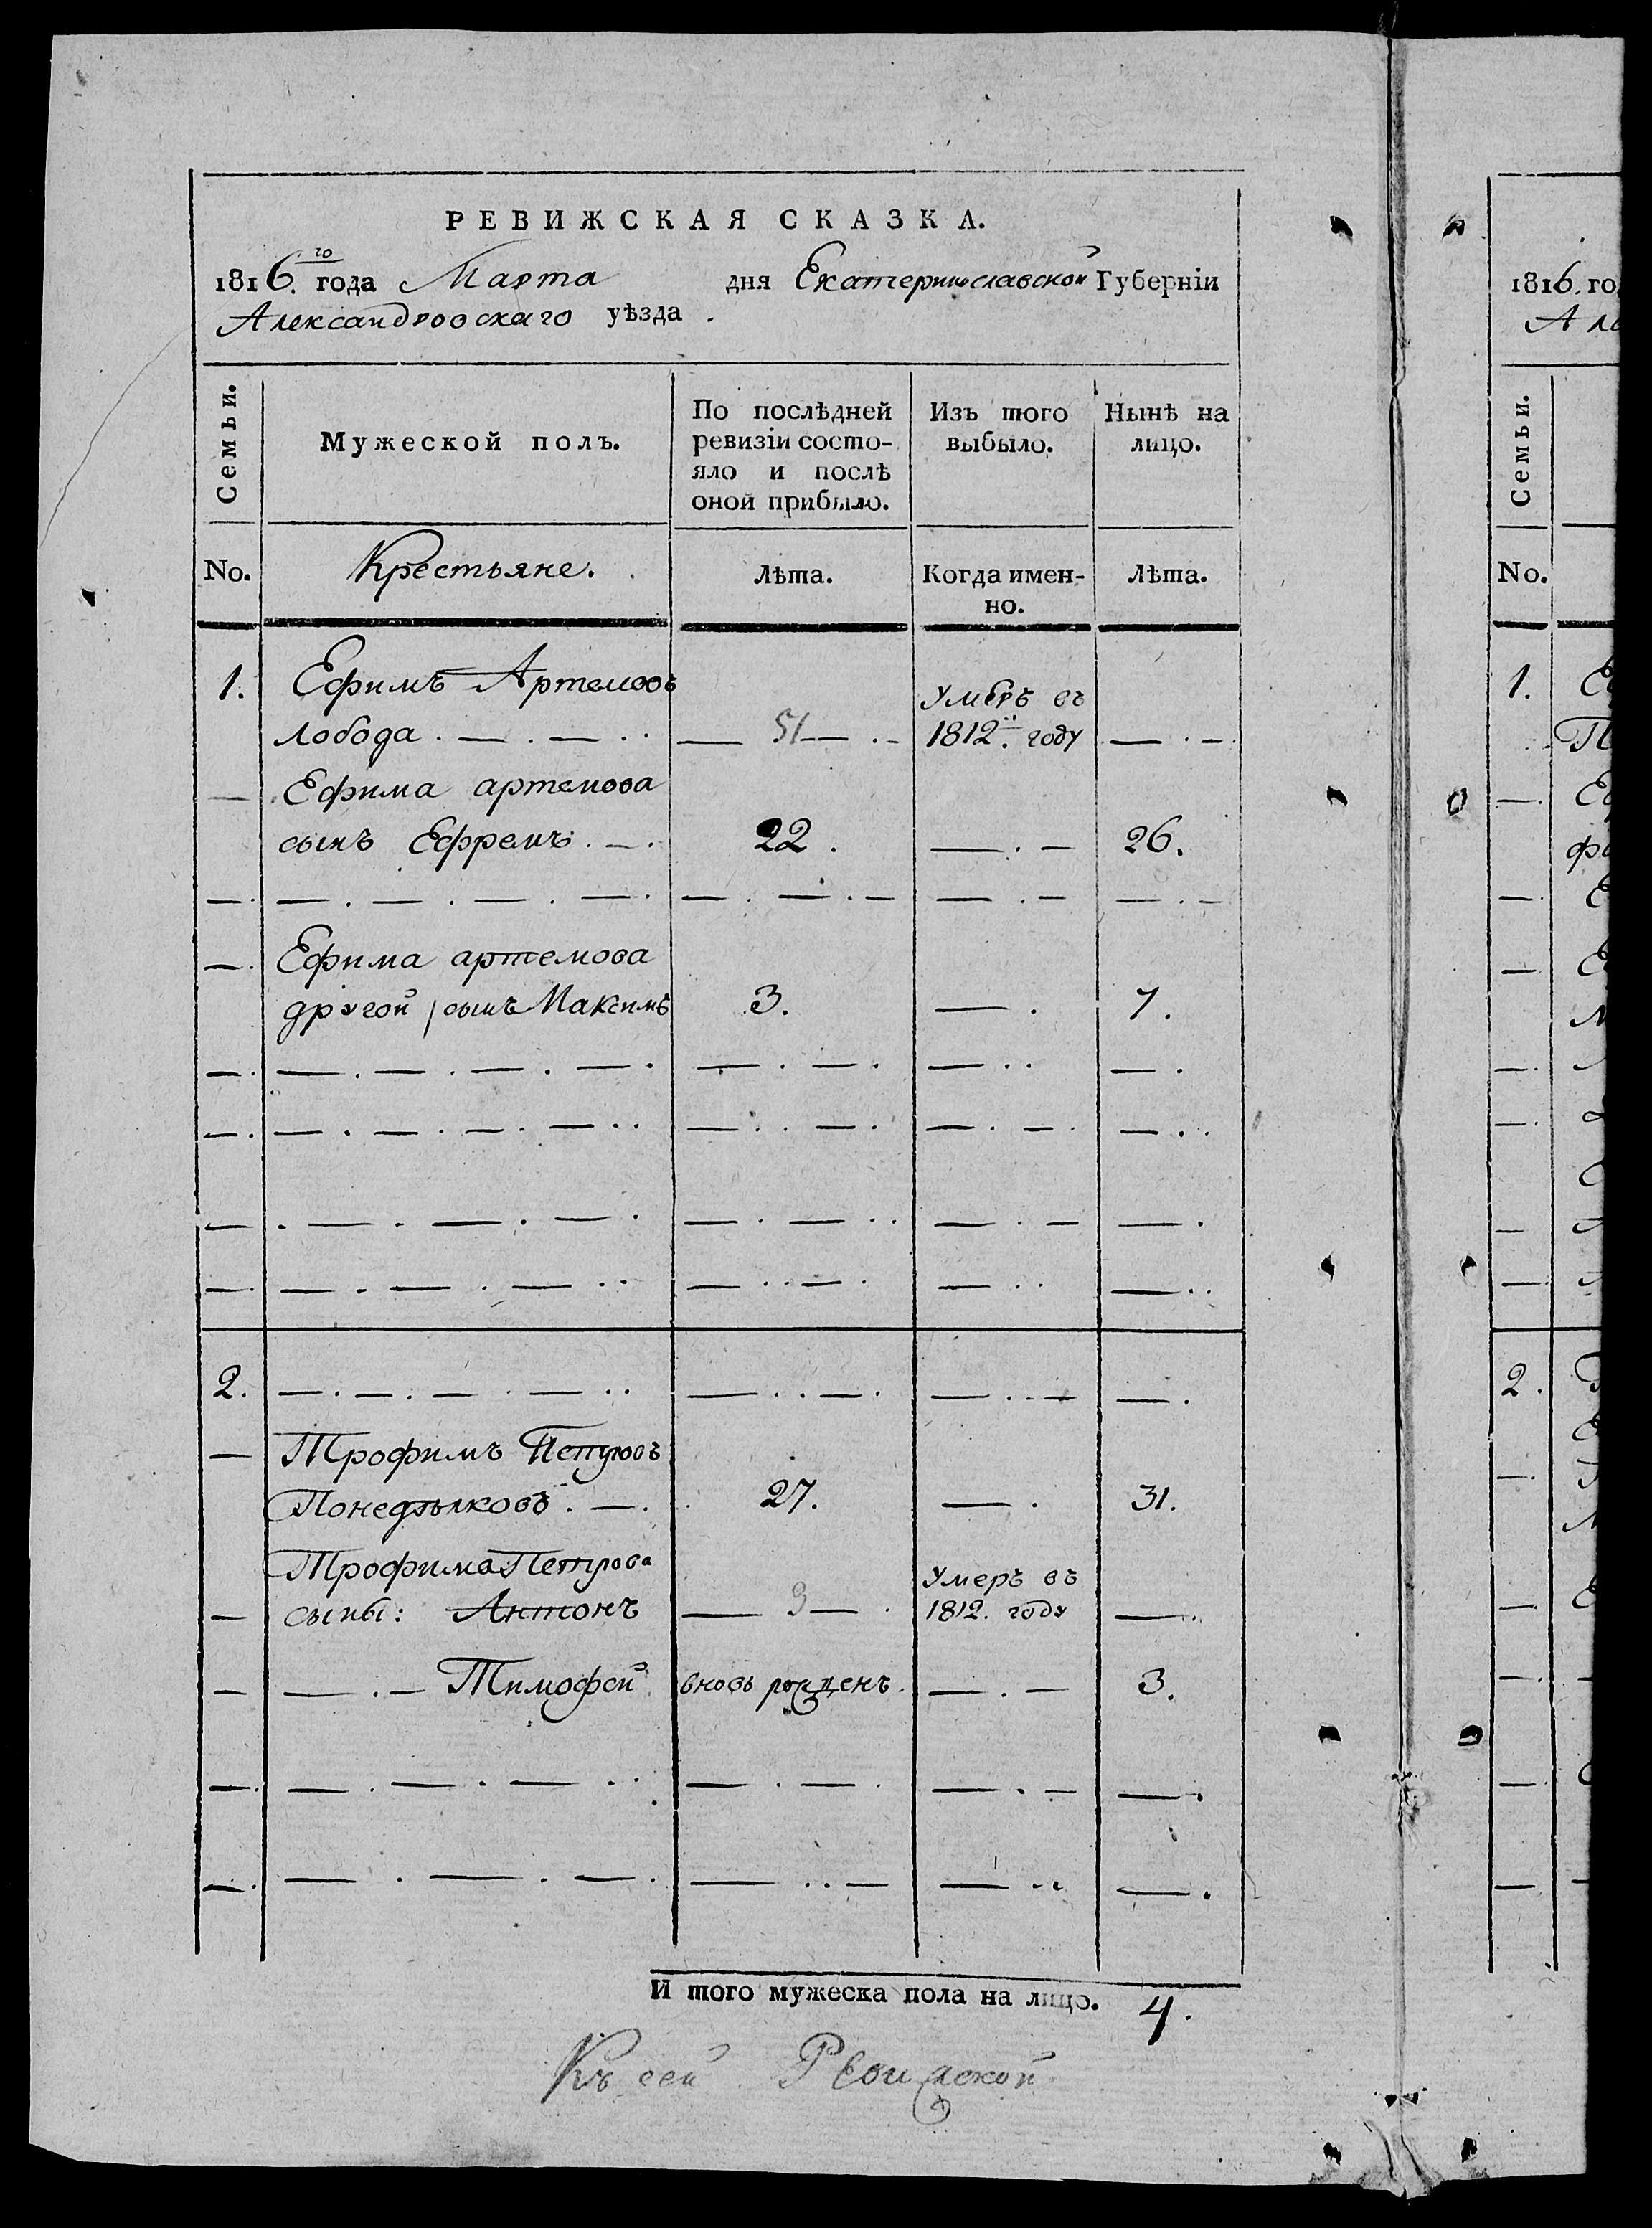 РЕВИЖСКАЯ СКАЗКА.
1816.го года Марта дня Екатеринославской Губерніи
Александровскаго уѣзда.
Семьи. Мужеской полъ. По послѣдней ревизіи состо- яло и послѣ оной прибыло. Изъ того выбыло. Нынѣ на лицо.
No. Крестьяне. Лѣта. Когда имен- но. Лѣта.
1. Ефимъ Артемовъ Умеръ въ
Лобода 51 1812. году
Ефима артемова
сынъ Ефремъ 22. 26.
Ефима артемова
другой сынъ Максимъ 3. 7.
2.
Трофимъ Петровъ
Понедѣлковъ 27. 31.
Трофима Петрова Умеръ въ
сыны: Антонъ 3 1812. году
Тимофей вновь рожденъ. 3.
И того мужеска пола на лицо. 4.
Къ сей Ревижской
1816. го
Ал
Семьи.
No.
1.
2.